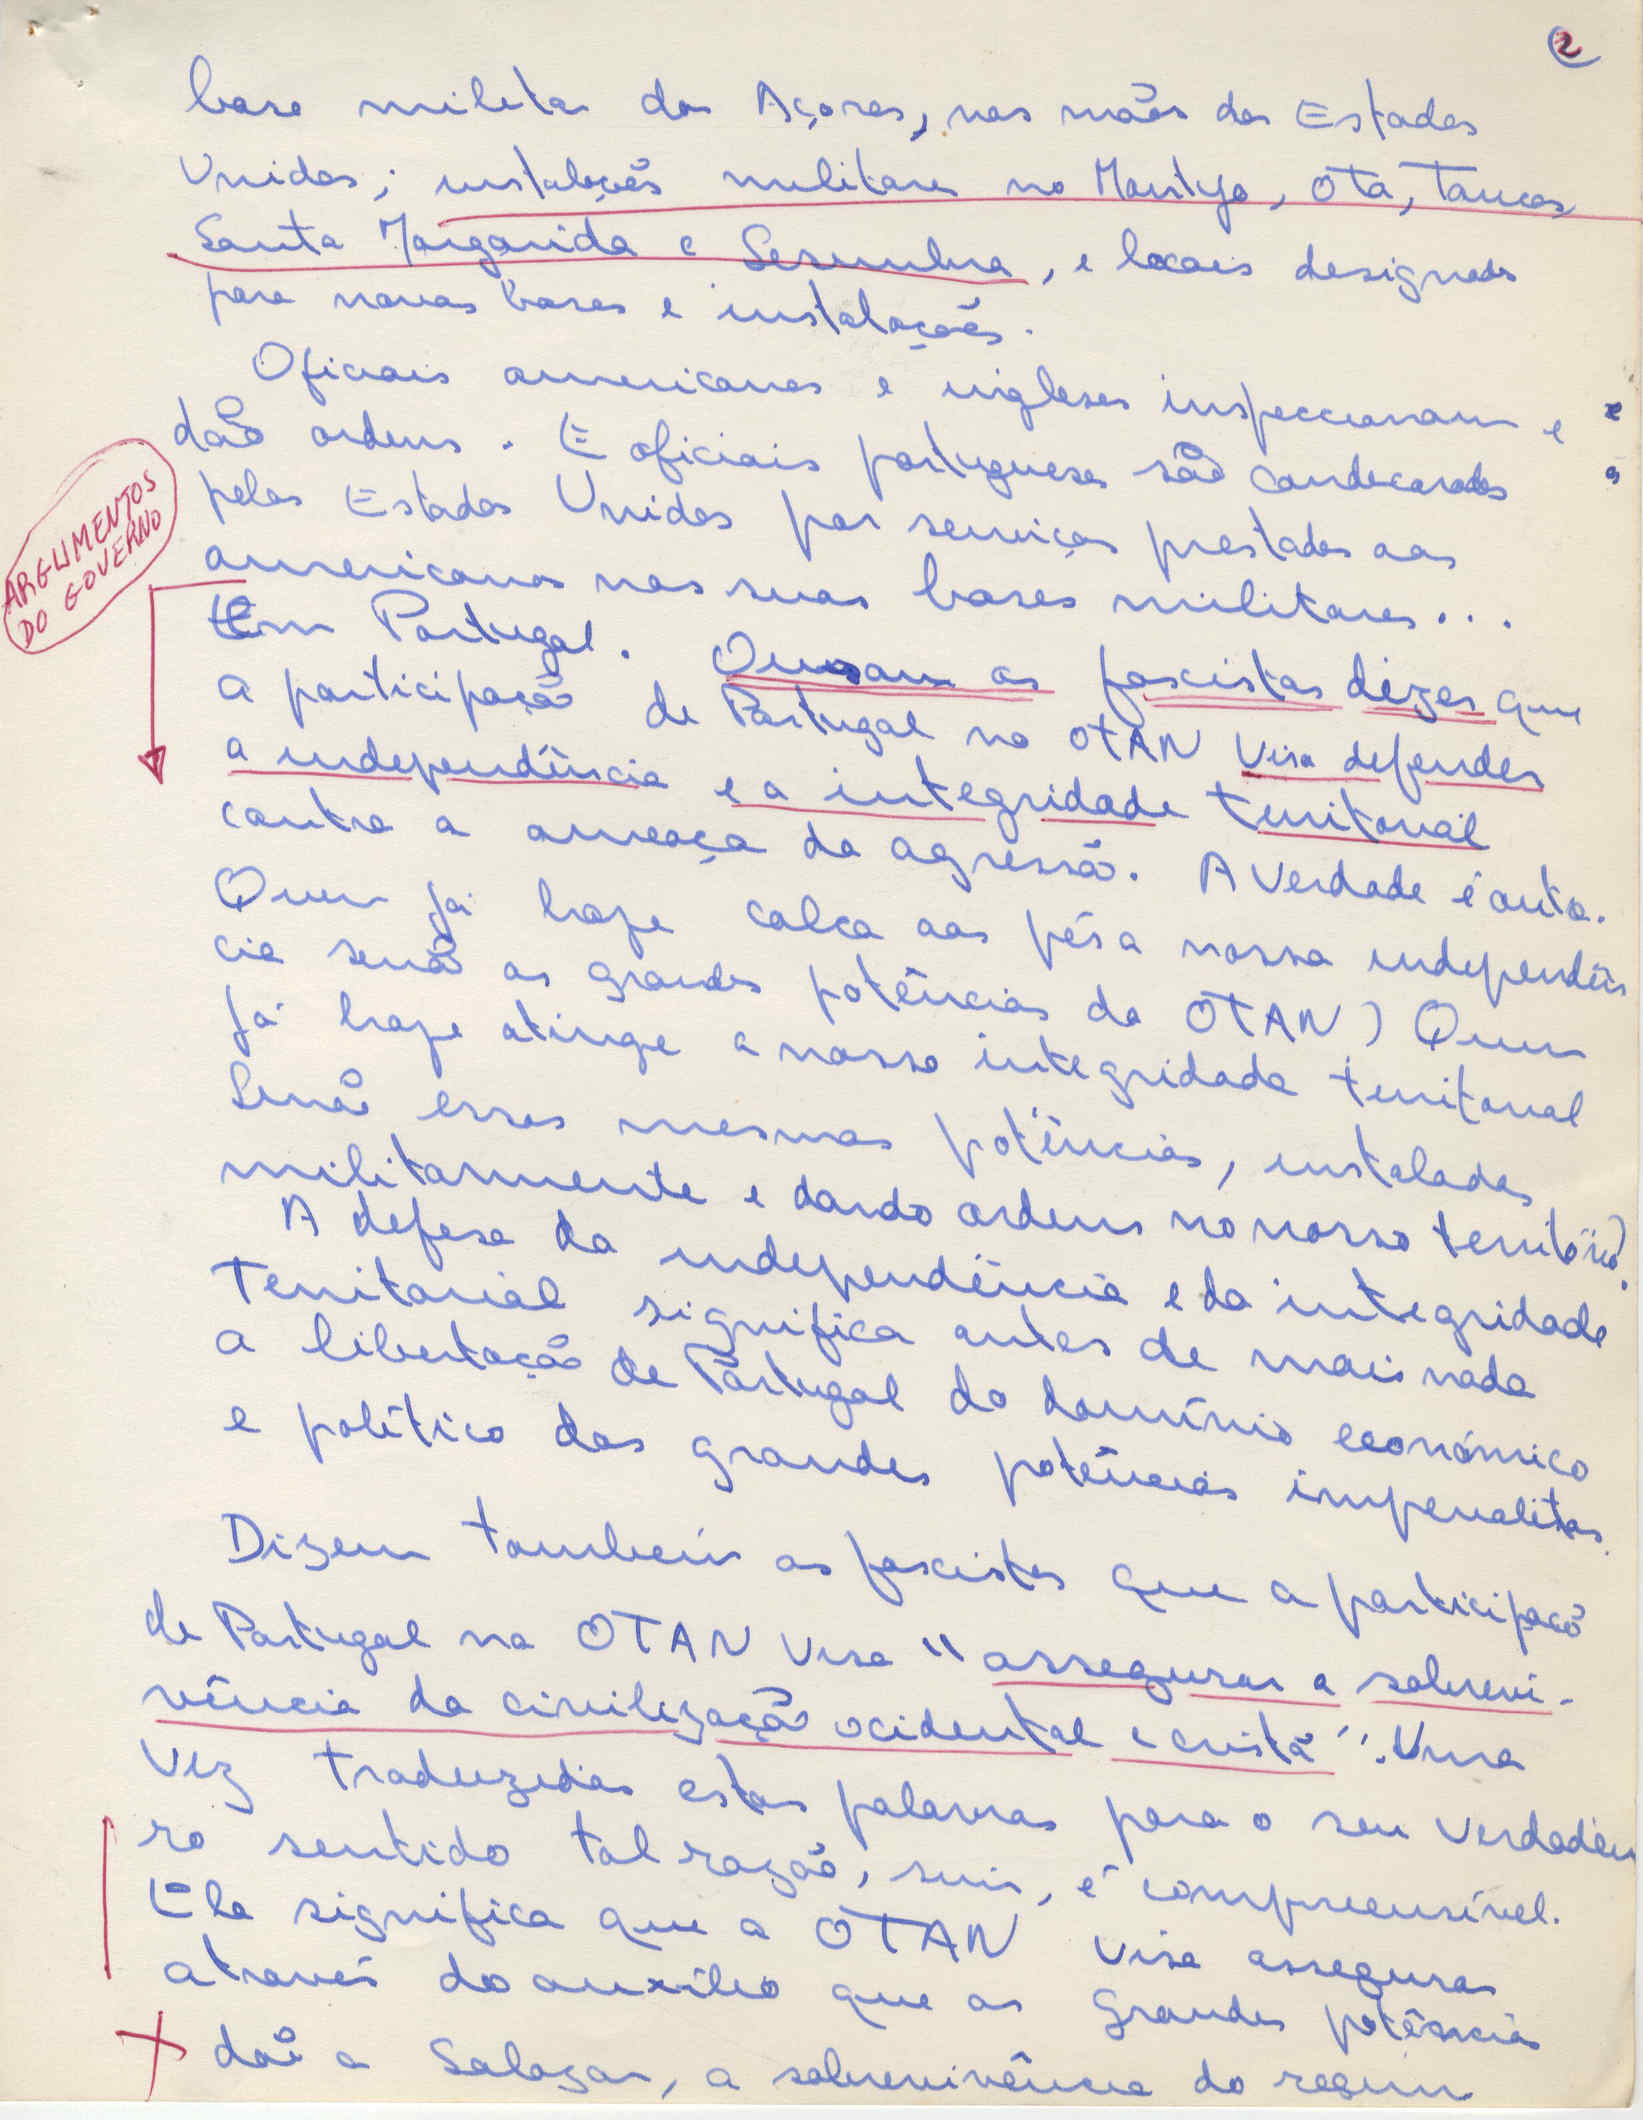 2
base militar dos Açores, nas mãos dos Estados
Unidos; instalações militares no Montijo, Ota, Tancos
Santa Margarida e Sesimbra, e locais designados
para novas bases e instalações.
Oficiais americanos e ingleses inspeccionam e
dão ordens. E oficiais portugueses são condecorados
pelos Estados Unidos por serviços prestados aos
americanos nas suas bases militares...
Em Portugal. Ousam os fascistas dizer que
a participação de Portugal no OTAN visa defender
a independência e a integridade territorial
contra a ameaça da agressão. A verdade é outra.
Quem já hoje calca aos pés a nossa independên
cia senão as grandes potências da OTAN? Quem
já hoje atinge a nossa integridade territorial
senão essas mesmas potências, instaladas
militarmente e dando ordens no nosso território?
A defesa da independência e da integridade
territorial significa antes de mais nada
a libertação de Portugal do domínio económico
e político das grandes potências imperialitas.
Dizem também os fascistas que a participação
de Portugal na OTAN visa "assegurar a sobrevi-
vência da civilização ocidental e cristã". Uma
vez traduzidas estas palavras para o seu verdadei
ro sentido tal razão, sim, é compreensível.
Ela significa que a OTAN visa assegurar
através do auxílio que as grandes potências
dão a Salazar, a sobrevivência do regim
ARGUMENTOS
DO GOVERNO